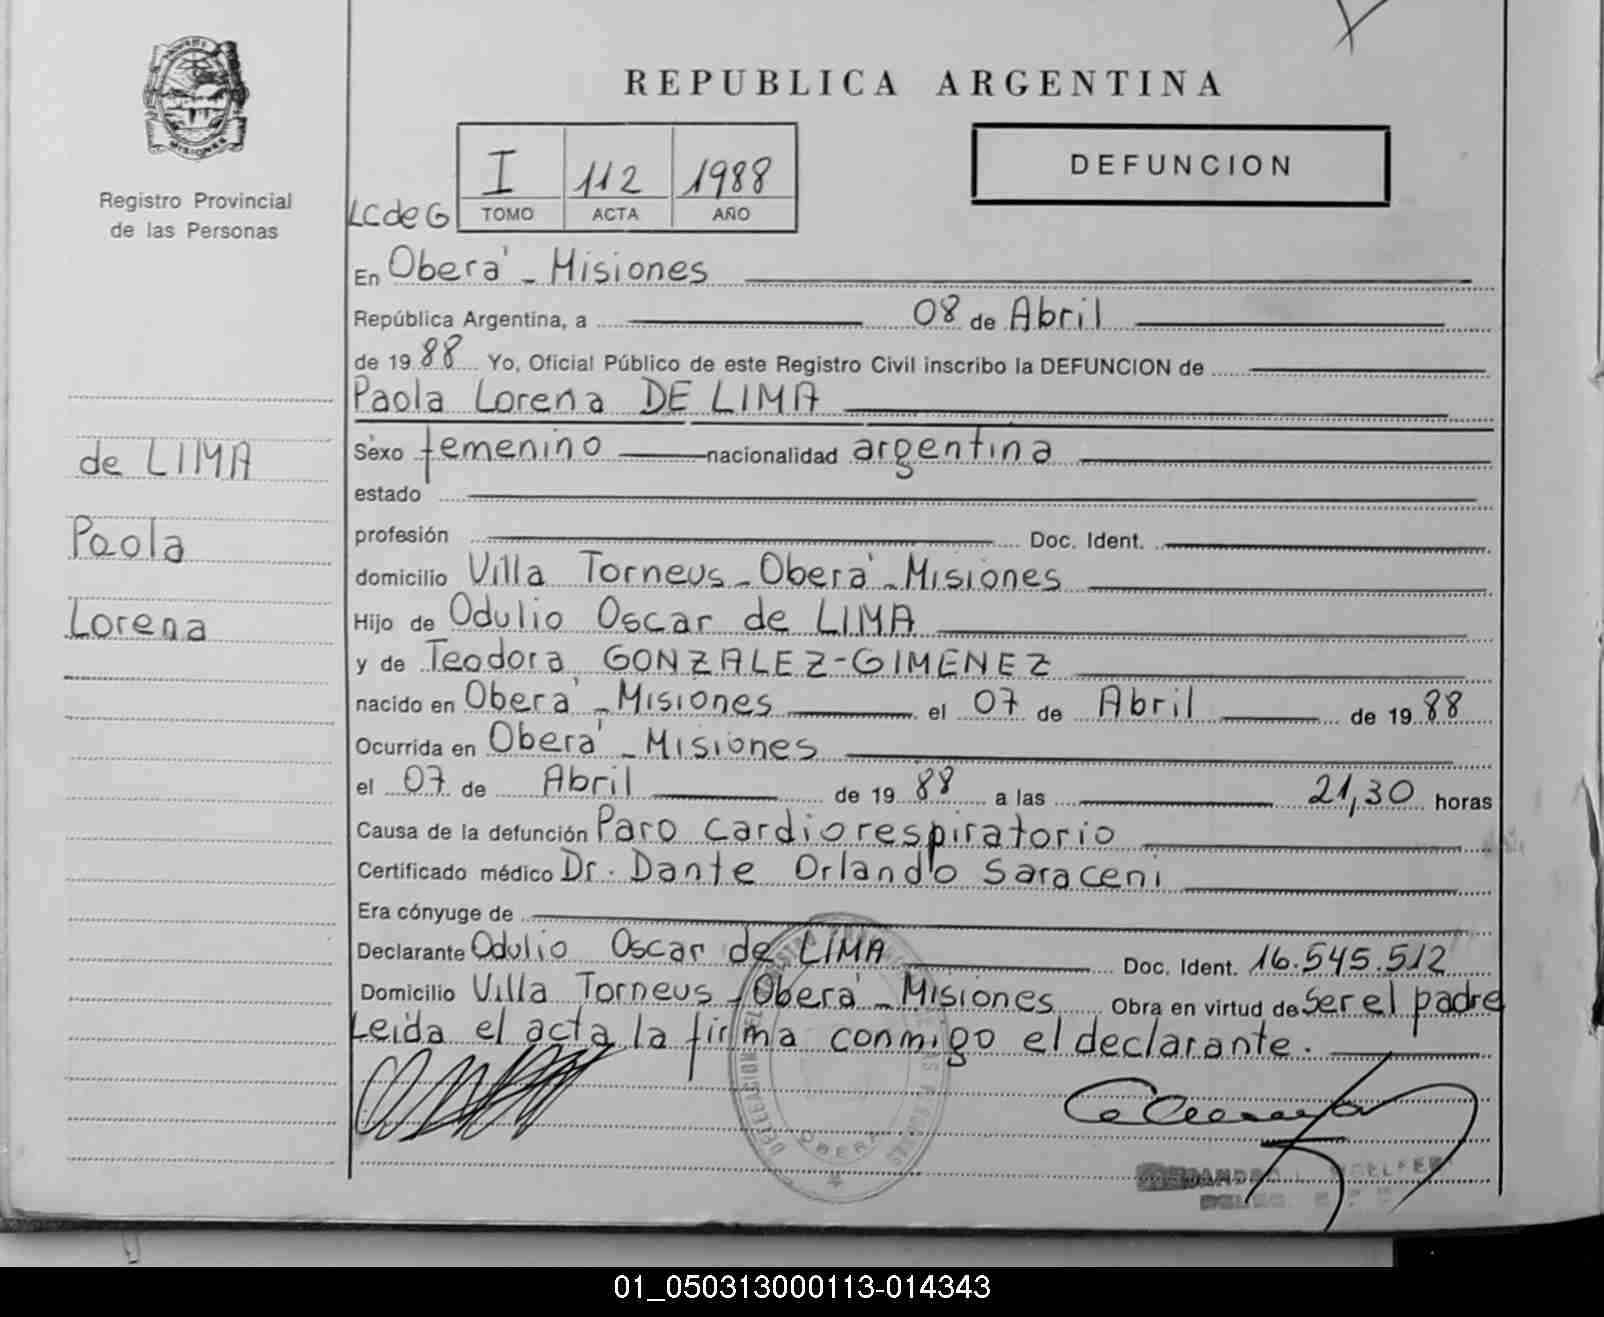 MISIONES
Registro Provincial
de las Personas
de LIMA
Paola
Lorena
REPUBLICA ARGENTINA
I 112 1988
TOMO ACTA AÑO
DEFUNCION
LCdeG
En Oberá - Misiones
República Argentina, a 08 de Abril
de 1988 Yo, Oficial Público de este Registro Civil inscribo la DEFUNCION de
Paola Lorena DE LIMA
Sexo femenino nacionalidad argentina
estado
profesión Doc. Ident.
domicilio Villa Torneus - Oberá - Misiones
Hijo de Odulio Oscar de LIMA
y de Teodora GONZALEZ-GIMENEZ
nacido en Oberá - Misiones el 07 de Abril de 1988
Ocurrida en Oberá - Misiones
el 07 de Abril de 1988 a las 21,30 horas
Causa de la defunción Paro cardiorespiratorio
Certificado médico Dr. Dante Orlando Saraceni
Era cónyuge de
Declarante Odulio Oscar de LIMA Doc. Ident. 16.545.512
Domicilio Villa Torneus - Oberá - Misiones Obra en virtud de ser el padre
Leida el acta la firma conmigo el declarante.
OBERA
01_050313000113-014343